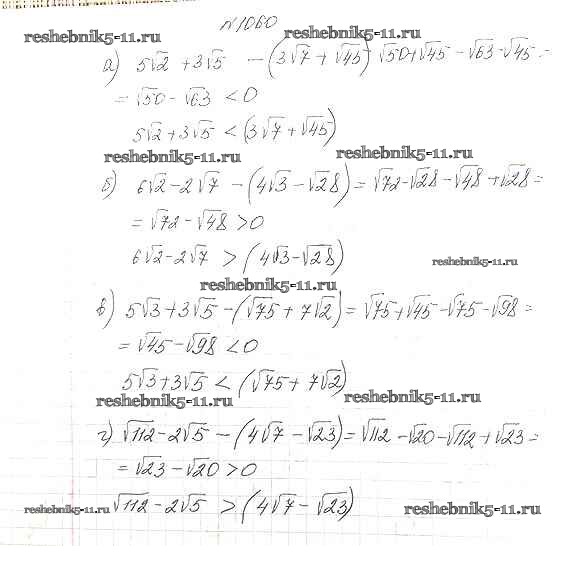 N1060
reshebnik5-11.ru reshebnik5-11.ru
а) 5√2 + 3√5 - (3√7 + √45) √50+√45 - √63 - √45 =
= √50 - √63 < 0
5√2 + 3√5 < (3√7 + √45)
reshebnik5-11.ru reshebnik5-11.ru
б) 6√2 - 2√7 - (4√3 - √28) = √72 - √28 - √48 + √28 =
= √72 - √48 > 0
6√2 - 2√7 > (4√3 - √28)
reshebnik5-11.ru
reshebnik5-11.ru
в) 5√3 + 3√5 - (√75 + 7√2) = √75 + √45 - √75 - √98 =
= √45 - √98 < 0
5√3 + 3√5 < (√75 + 7√2)
reshebnik5-11.ru reshebnik5-11.ru
г) √112 - 2√5 - (4√7 - √23) = √112 - √20 - √112 + √23 =
= √23 - √20 > 0
reshebnik5-11.ru √112 - 2√5 > (4√7 - √23) reshebnik5-11.ru